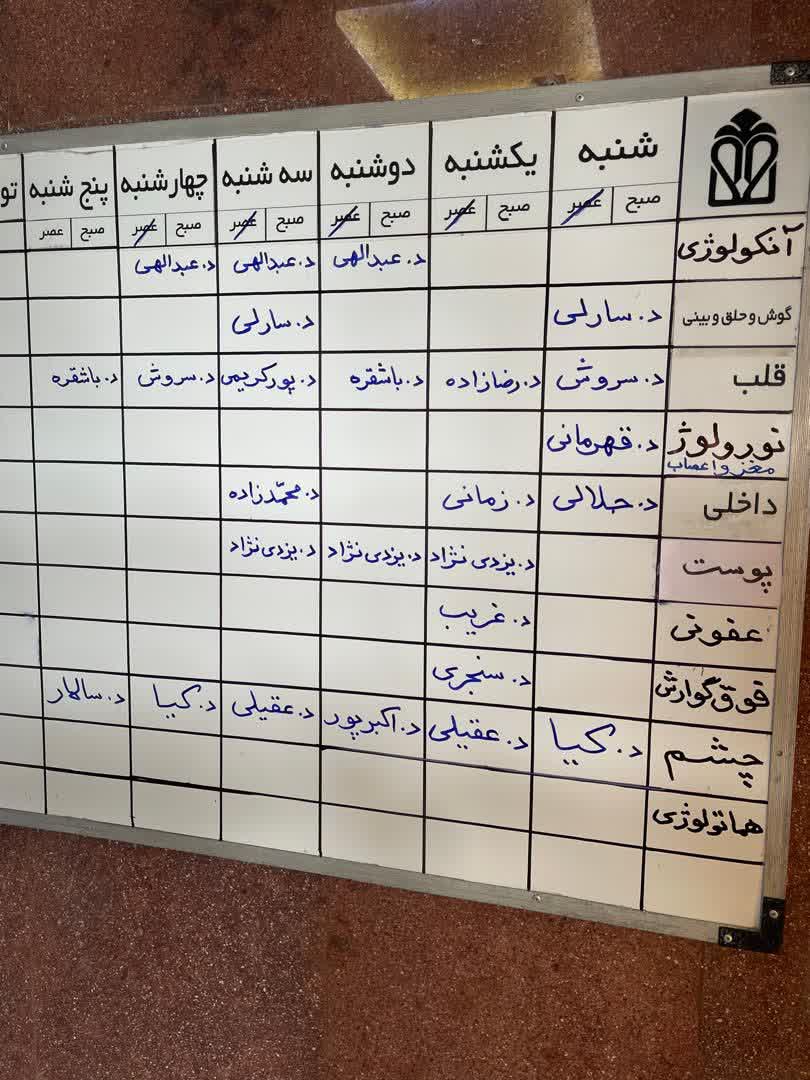 شنبه یکشنبه دوشنبه سه شنبه چهارشنبه پنج شنبه تو
صبح عصر صبح عصر صبح عصر صبح عصر صبح عصر صبح عصر
آنکولوژی د. عبدالهی د. عبدالهی د. عبدالهی
گوش و حلق و بینی د. سارلی د. سارلی
قلب د. سروش د. رضازاده د. باشقره د. پورکریمی د. سروش د. باشقره
نورولوژ د. قهرمانی
مغز و اعصاب
داخلی د. جلالی د. زمانی د. محمّدزاده
پوست د. یزدی نژاد د. یزدی نژاد د. یزدی نژاد
عفونی د. غریب
فوق گوارش د. سنجری
چشم د. کیا د. عقیلی د. اکبرپور د. عقیلی د. کیا د. سالار
هماتولوژی